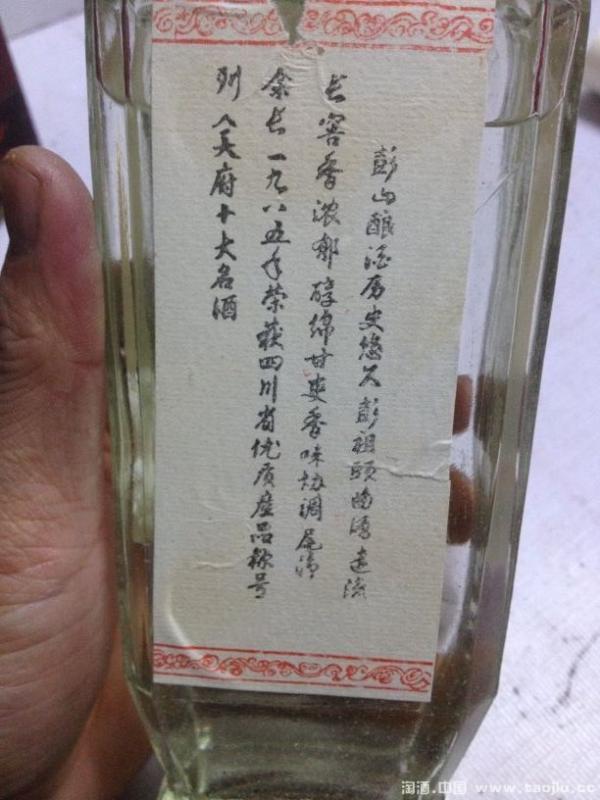 彭山酿酒历史悠久彭祖头曲源远流
长窖香浓郁醇绵甘爽香味协调尾净
余长一九八五年荣获四川省优质产品称号
列入天府十大名酒
淘酒.中国 www.taojiu.cc